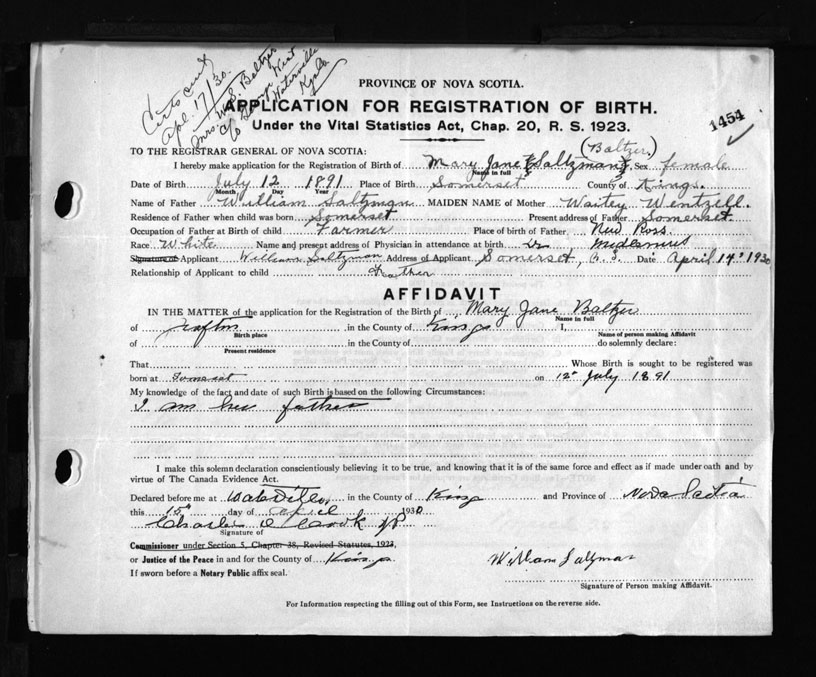 Certs ent
Apl. 17/30.
Mrs. W. S. Baltzer
Waterville
PROVINCE OF NOVA SCOTIA.
APPLICATION FOR REGISTRATION OF BIRTH.
Under the Vital Statistics Act, Chap. 20, R. S. 1923.
1454
TO THE REGISTRAR GENERAL OF NOVA SCOTIA:
(Baltzer)
I hereby make application for the Registration of Birth of Mary Jane (Saltzman) Sex female
Name in full
Date of Birth July 12 1891 Place of Birth Somerset County of Kings.
Month Day Year
Name of Father William Saltzman MAIDEN NAME of Mother Waitey Wentzell.
Residence of Father when child was born Somerset Present address of Father Somerset.
Occupation of Father at Birth of child Farmer Place of birth of Father New Ross.
Race White Name and present address of Physician in attendance at birth Dr
Signature of Applicant William Saltzman Address of Applicant Somerset, Date April 14" 1930
Relationship of Applicant to child Father
AFFIDAVIT
IN THE MATTER of the application for the Registration of the Birth of Mary Jane Baltzer
Name in full
of Grafton in the County of Kings I,
Birth place Name of person making Affidavit
of in the County of do solemnly declare:
Present residence
That Whose Birth is sought to be registered was
born at Somerset on 12th July 1891
My knowledge of the fact and date of such Birth is based on the following Circumstances:
I am her father
I make this solemn declaration conscientiously believing it to be true, and knowing that it is of the same force and effect as if made under oath and by
virtue of The Canada Evidence Act.
Declared before me at Waterville, in the County of Kings and Province of Nova Scotia
this 15th day of April 1930
Charles O Cook JP
Signature of
Commissioner under Section 5, Chapter 38, Revised Statutes, 1923,
or Justice of the Peace in and for the County of Kings.
William Saltzman
If sworn before a Notary Public affix seal.
Signature of Person making Affidavit.
For Information respecting the filling out of this Form, see Instructions on the reverse side.